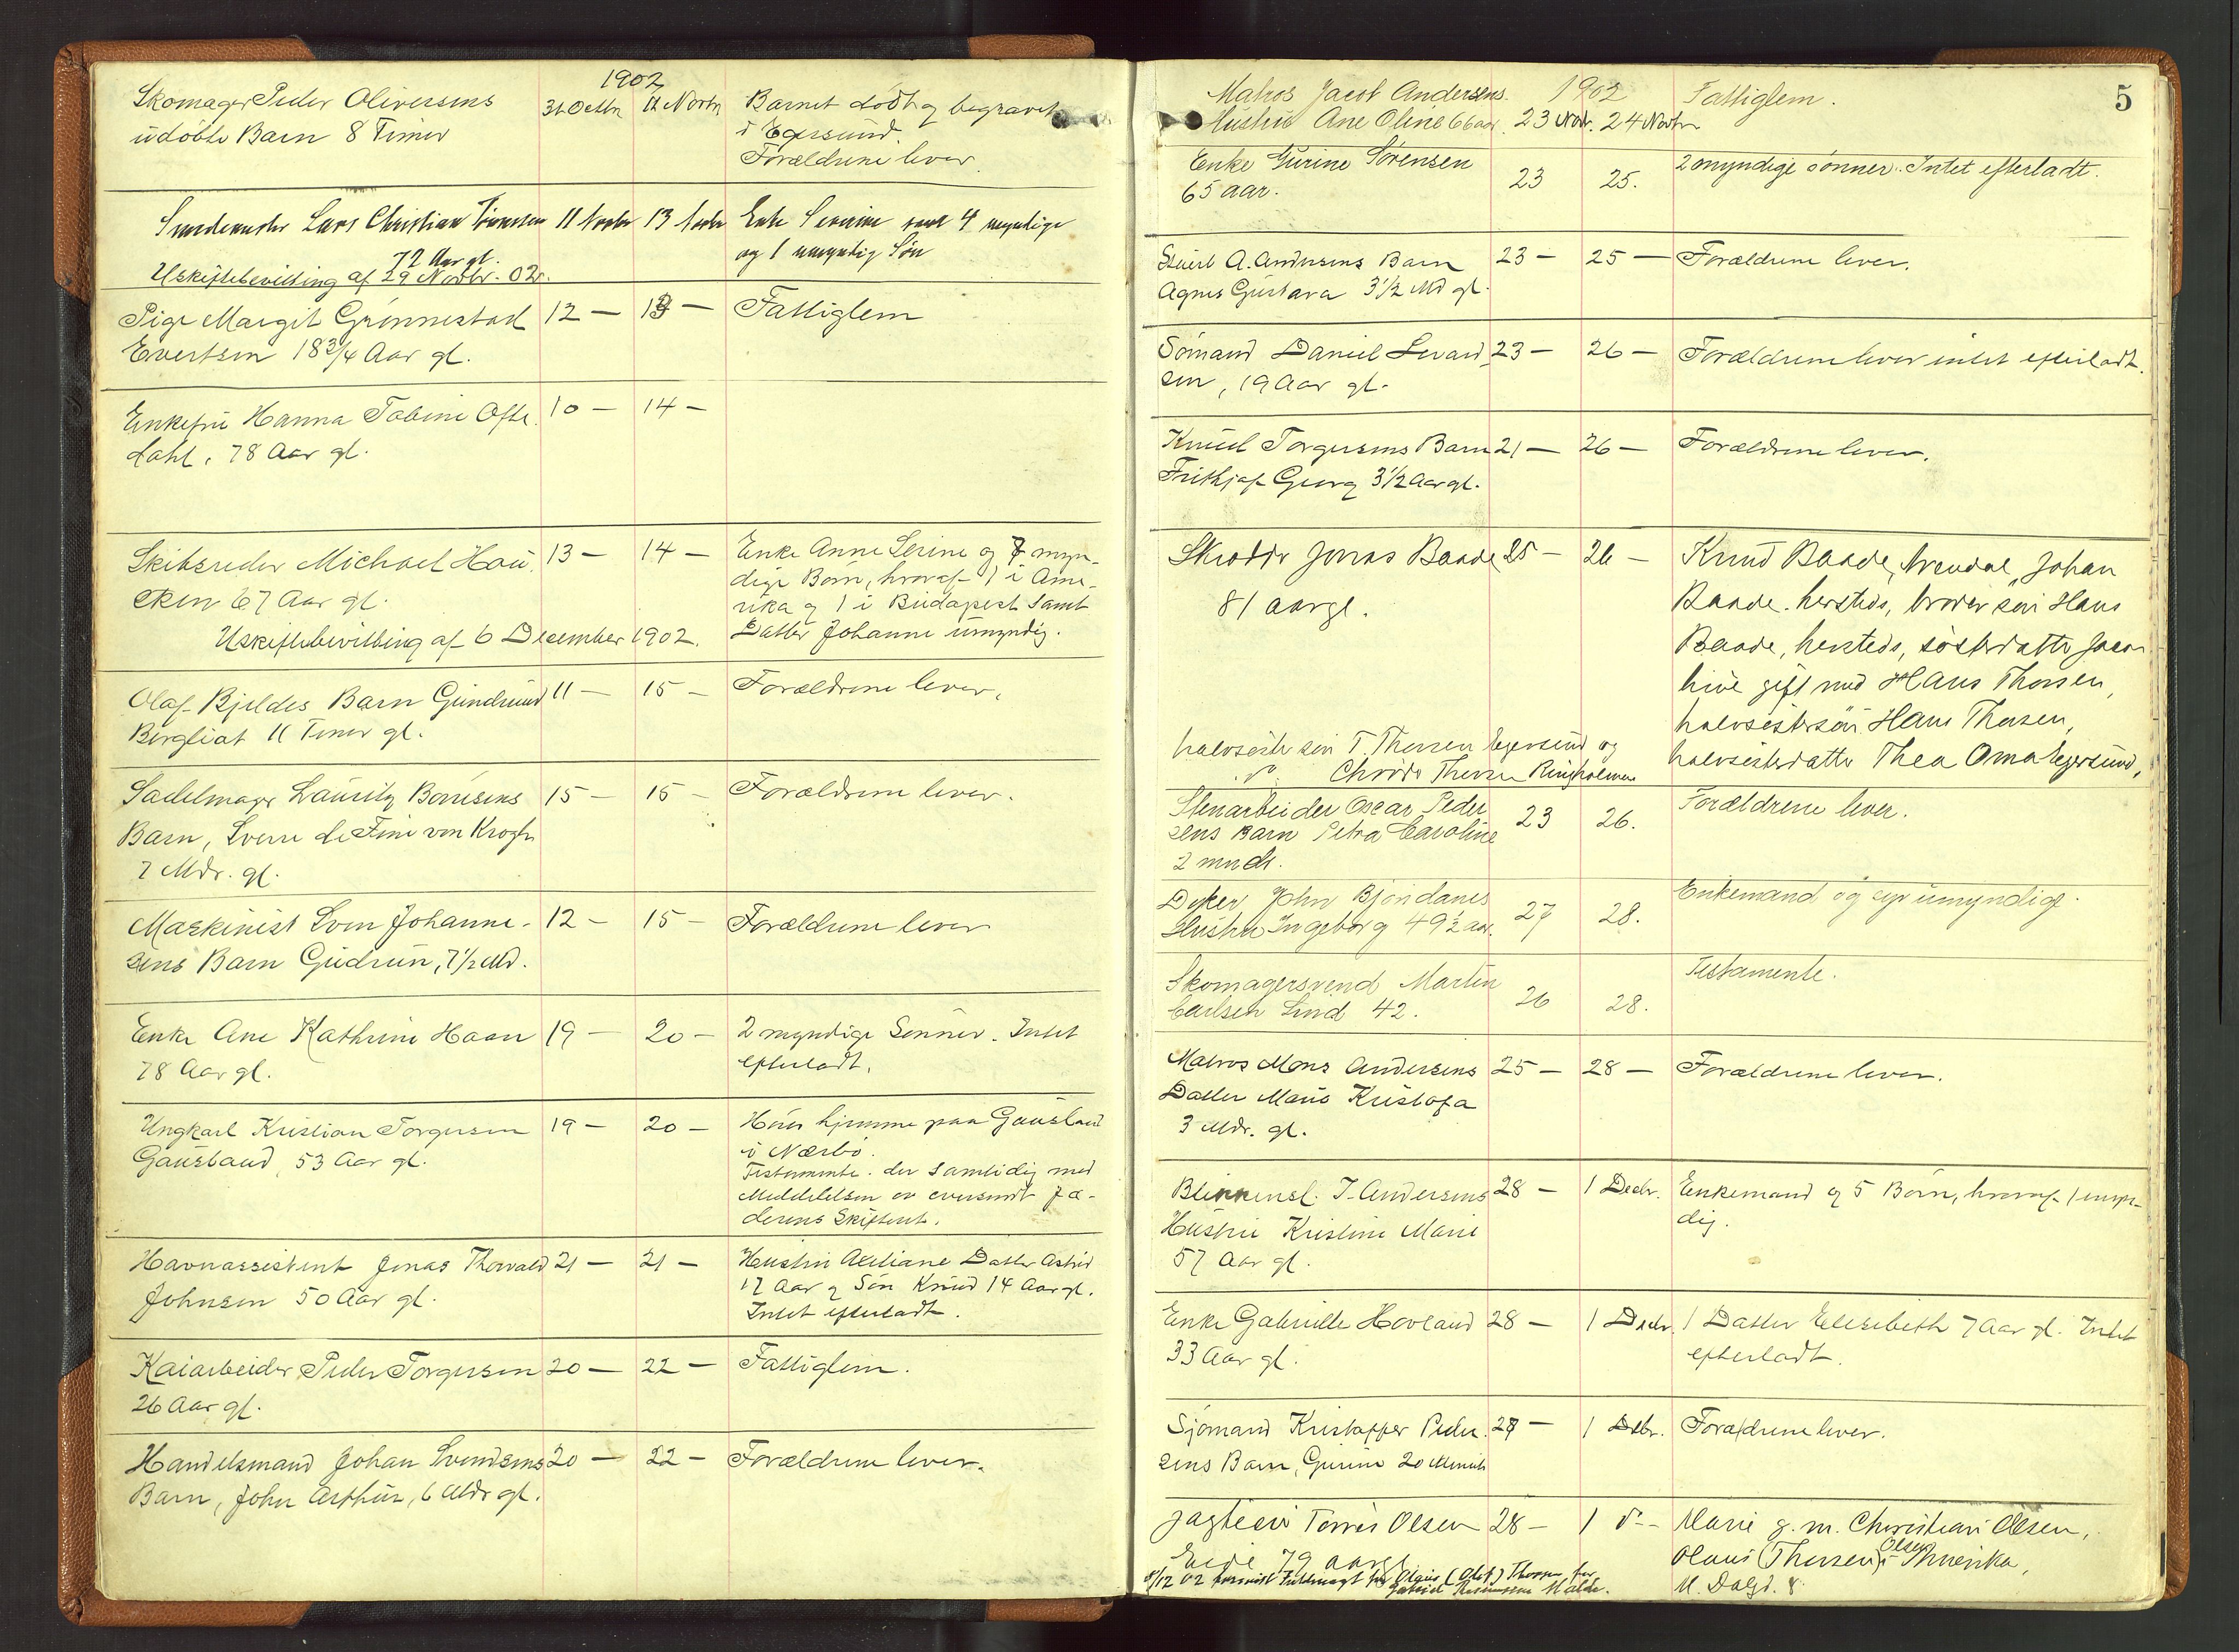 1902
Skomager Peder Oliversens 31 Octbr 11 Novbr Barnet dødt og begravet
udøbte Barn 8 Timer i Egersund.
Forældrene lever.
Lars Christian 11 Novbr 13 Novbr Enke Severine samt 4 myndige
72 Aar gl. og 1 umyndig Søn
Uskiftebevilling af 29 Novbr. 02.
Pige Margit Grønnestad 12 — 13 — Fattiglem
Evertsen 18 3/4 Aar gl.
Enkefru Hanna Tobine Ofte 10 — 14 —
dahl, 78 Aar gl.
Skibsreder Michael Hau 13 — 14 — Enke Anne Serine og 7 myn-
cken 67 Aar gl. dige Børn, hvoraf 1 i Ame-
rika og 1 i Budapest samt
Uskiftebevilling af 6 December 1902. Datter Johanne umyndig.
Olaf Bjeldes Barn Gundrund 11 — 15 — Forældrene lever.
Bergliot 11 Timer gl.
Sadelmager Lauritz Boruséns 15 — 15 — Forældrene lever.
Barn, Sverre de Fine von Krogh
7 Mdr. gl.
Maskinist Sven Johanne- 12 — 15 — Forældrene lever
sens Barn Gudrun, 7 1/2 Md.
Enke Ane Kathrine Haan 19 — 20 — 2 myndige Sønner. Intet
78 Aar gl. efterladt.
Ungkarl Kristian Torgersen 19 — 20 — Hører hjemme paa Gausland
Gausland, 53 Aar gl. i Nærbø.
Testamente. der samtidig med
Meddelelsen er oversendt Jæ-
derens Skifteret.
Havnassistent Jonas Thorvald 21 — 21 — Hustru Axeliane Datter Astrid
Johnsen 50 Aar gl. 17 Aar og Søn Knud 14 Aar gl.
Intet efterladt.
Kaiarbeider Peder Torgersen 20 — 22 — Fattiglem.
26 Aar gl.
Handelsmand Johan Svendsens 20 — 22 — Forældrene lever.
Barn, John Arthur, 6 Mdr gl.
5
Matros Jacob Andersens 1902 Fattiglem.
Hustru Ane Oline 66 aar. 23 Nov. 24 Novbr
Enke Gurine Sørensen 23 25. 2 myndige sønner. Intet efterladt.
65 aar.
Stuert A. Andersens Barn 23 — 25 — Forældrene lever.
Agnes Gustava 3 1/2 Md gl.
Sømand Daniel Sevard 23 — 26 — Forældrene lever intet efterladt.
sen, 19 Aar gl.
Knud Torgersens Barn 21 — 26 — Forældrene lever.
Frithjof Georg 3 1/2 Aar gl.
Skrædder Jonas Baade 25 — 26 — Knud Baade, Arendal, Johan
81 aar gl. Baade. hersteds, brodersøn Hans
Baade, hersteds, søsterdatter
gift med Hans Thorsen,
halvsøstersøn Hans Thorsen,
halvsøstersøn T. Thorsen Egersund og halvsøsterdatter Thea Oma Egersund,
do. Thorsen Ringholmen
Stenarbeider Oscar Peder 23 26. Forældrene lever.
sens Barn Petra Caroline
2 mndr.
Dykker John Bjondanes 27 28. Enkemand og umyndige.
Hustru Ingeborg 49 1/2 aar.
Skomagersvend Martin 26 28. Testamente.
Carlsen Lind 42.
Matros Mons Andersens 25 — 28 — Forældrene lever.
Datter Marie Kristofa
3 Mdr. gl.
Blikkensl. T. Andersens 28 — 1 Decbr. Enkemand og 5 Børn, hvoraf 1 umyn-
Hustru Kristine Marie dig.
57 Aar gl.
Enke Gabrielle Hovland 28 — 1 Decbr. 1 Datter Elesebeth 7 Aar gl. Intet
33 Aar gl. efterladt.
Sjømand Kristoffer Peder 27 — 1 Debr. Forældrene lever.
sens Barn, Gurine 20 Minuts
Tørres Olsen 28 — 1 do — Marie g. m. Christian Olsen,
Eide 79 aar gl. Olaus (Thorsen) Olsen i Amerika,
/12 02 Fuldmagt for Olaus (Olsen) Thorsen for
Gabriel Rasmussen Malde.